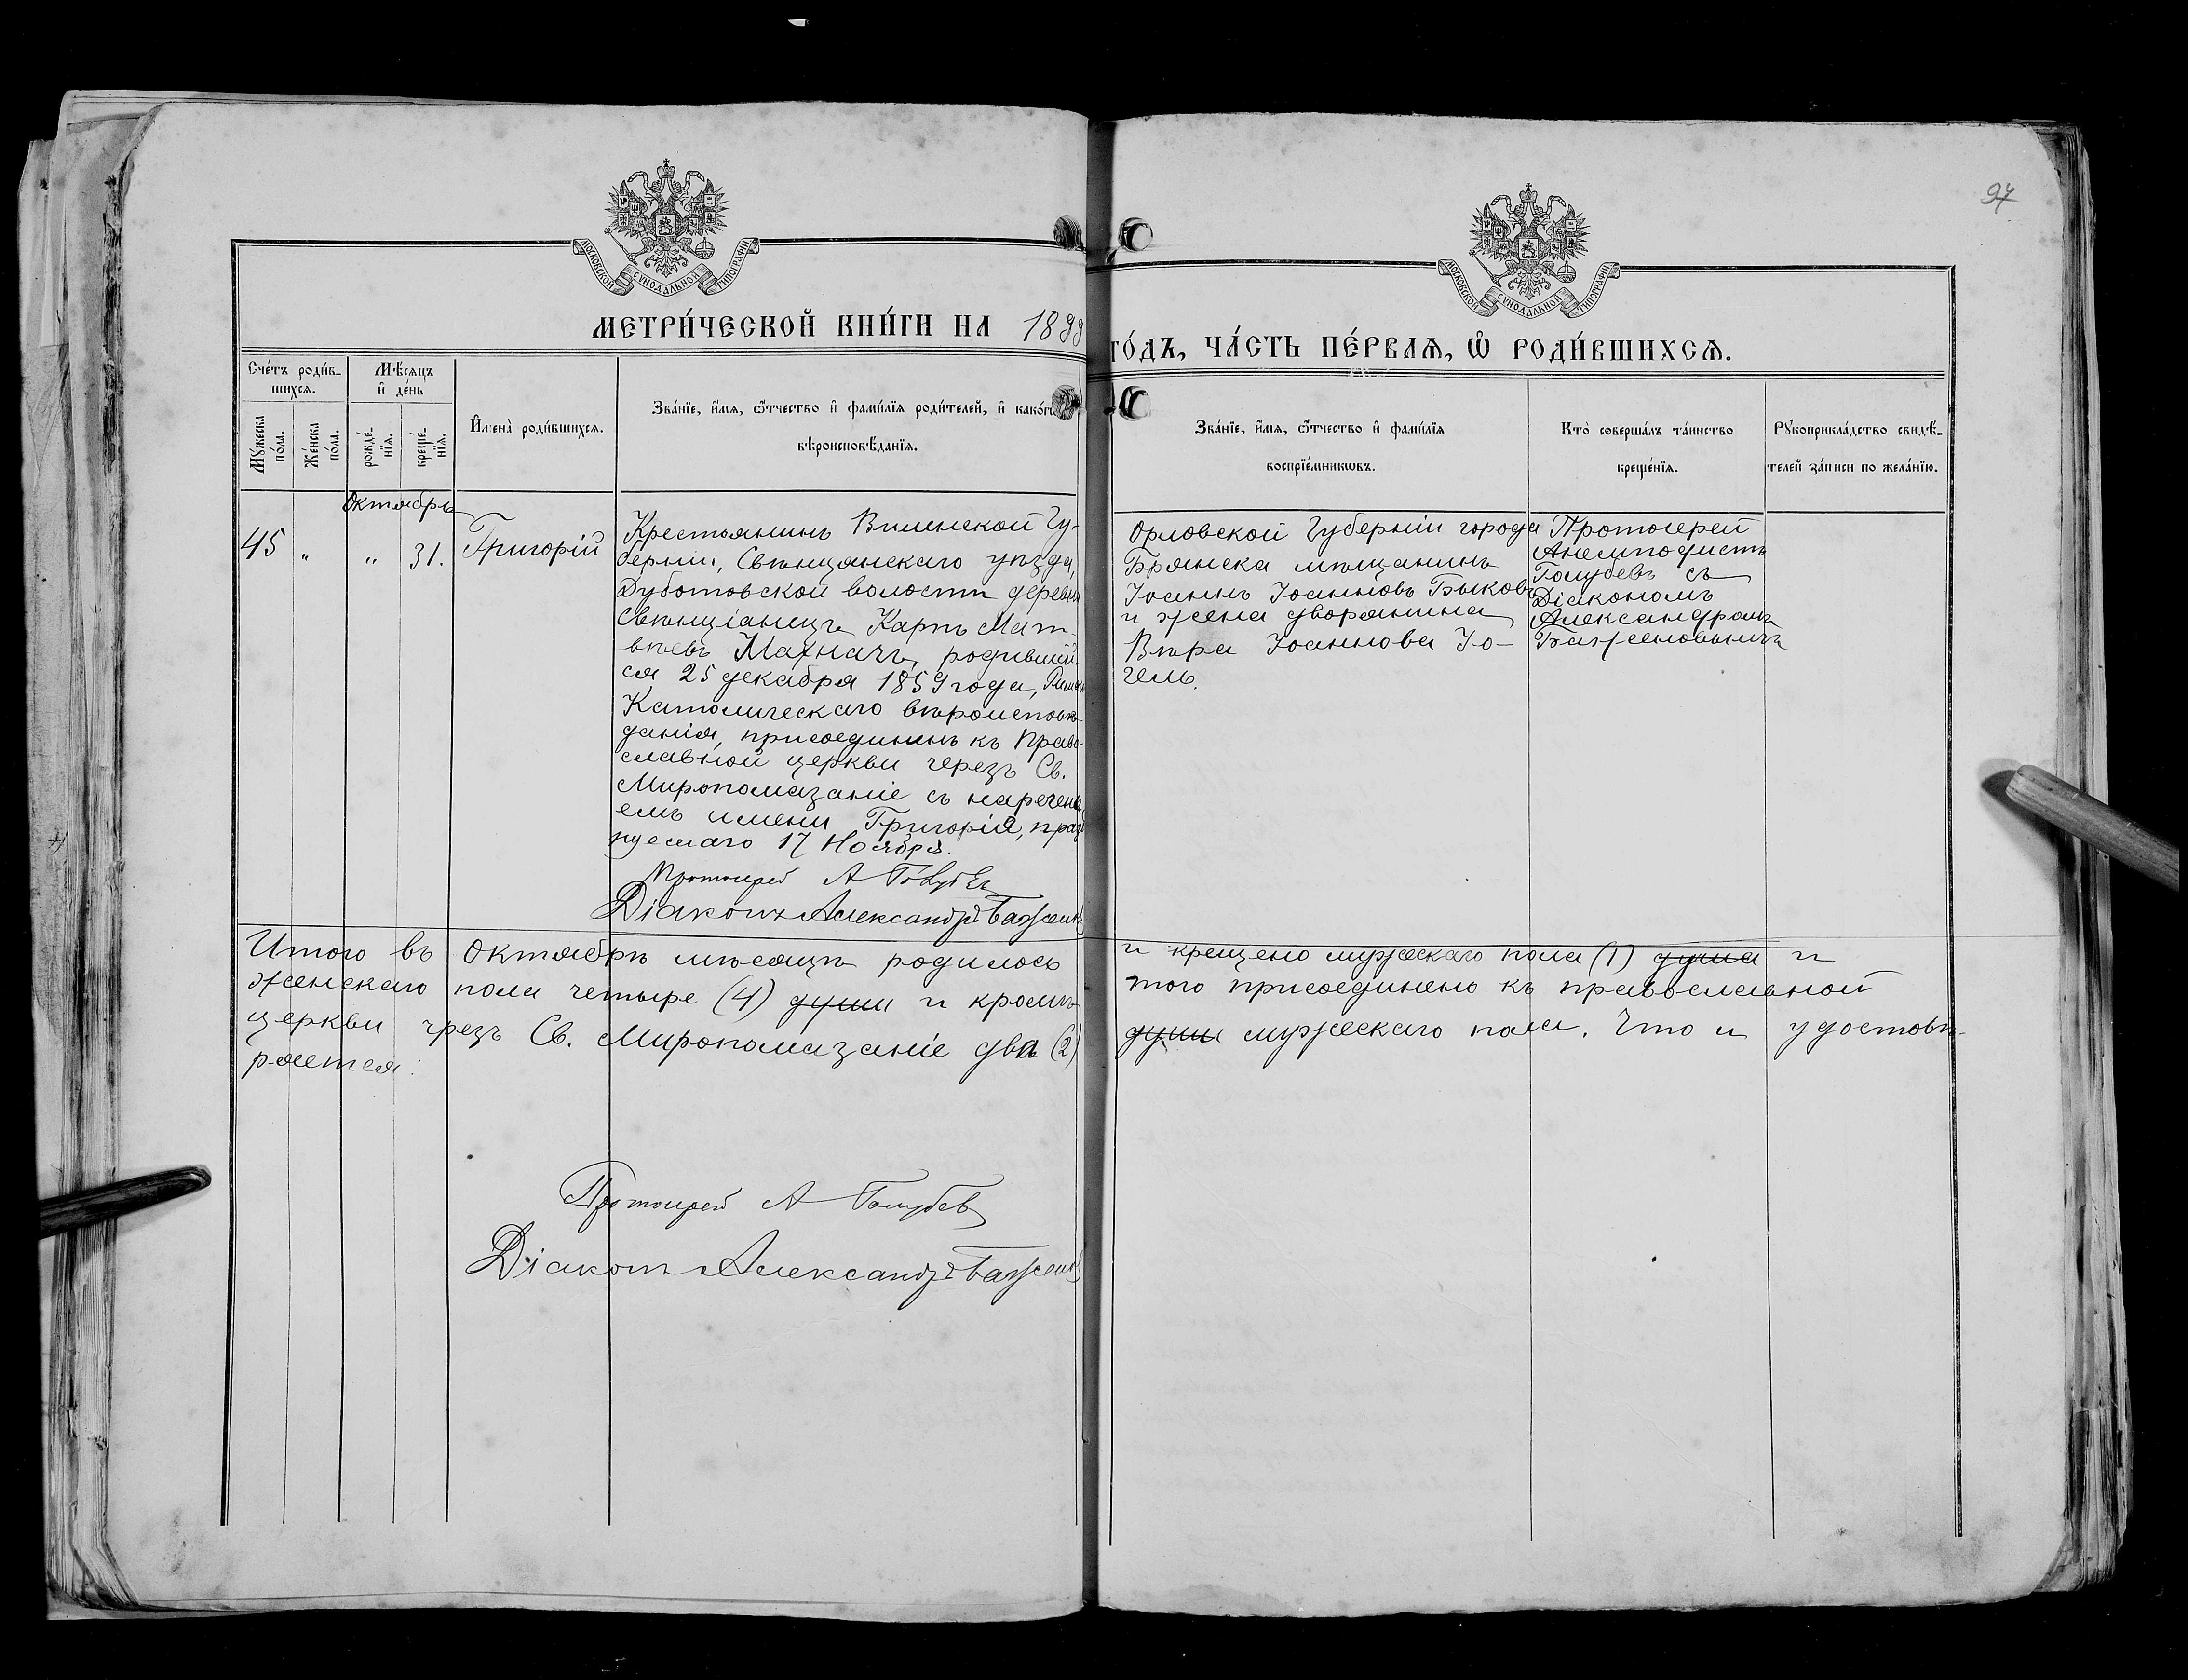 97
МОСКОВСКОЙ СУНОДАЛЬНОЙ ТИПОГРАФІИ
МОСКОВСКОЙ СУНОДАЛЬНОЙ ТИПОГРАФІИ
МЕТРИ́ЧЕСКОЙ КНИ́ГИ НА 1899
ГО́ДЪ, ЧА́СТЬ ПЕ́РВАѦ, Ѡ҆ РОДИ́ВШИХСѦ.
Сче́тъ роди́в-
шихсѧ.
Мѣ́сѧцъ
и҆ де́нь
Мꙋ́жеска
по́ла.
Же́нска
по́ла.
рожде́-
нїѧ.
креще́-
нїѧ.
И҆мена̀ роди́вшихсѧ.
Зва́нїе, и҆́мѧ, ѻ҆́тчество и҆ фами́лїѧ роди́телей, и҆ како́гѡ
вѣроисповѣ́данїѧ.
Зва́нїе, и҆́мѧ, ѻ҆́тчество и҆ фами́лїѧ
воспрїе́мникѡвъ.
Кто̀ соверша́лъ та́инство
креще́нїѧ.
Рꙋкоприкла́дство свидѣ́-
телей за́писи по жела́нїю.
Октябрь
45 " " 31. Григорій
Крестьянинъ Виленской Гу-
берніи, Свѣнцянскаго уѣзда,
Дуботовской волости деревни
Свѣнціанецъ Карпъ Мат-
вѣевъ Махначъ, родившій-
ся 25 декабря 1859 года, Римско
Католическаго вѣроисповѣ-
данія, присоединенъ къ Право-
славной церкви черезъ Св.
Мѵропомазаніе съ наречені-
емъ имени Григорій, празд
нуемаго 17 Ноября.
Протоіерей А Голубев
Діаконъ Александръ Баженов
Орловской Губерніи города
Брянска мѣщанинъ
Іоаннъ Іоанновъ Быковъ
и жена дворянина
Вѣра Іоаннова Іо-
гель.
Протоіерей
Анемподистъ
Голубевъ съ
Діакономъ
Александромъ
Баженовымъ
Итого въ Октябрѣ мѣсяцѣ родилось и крещено мужескаго пола (1) душа и
женскаго пола четыре (4) души и кромѣ того присоединено къ православной
церкви чрезъ Св. Мѵропомазаніе два (2) души мужескаго пола. Что и удостовѣ-
ряется:
Протоіерей А Голубев
Діаконъ Александръ Баженов